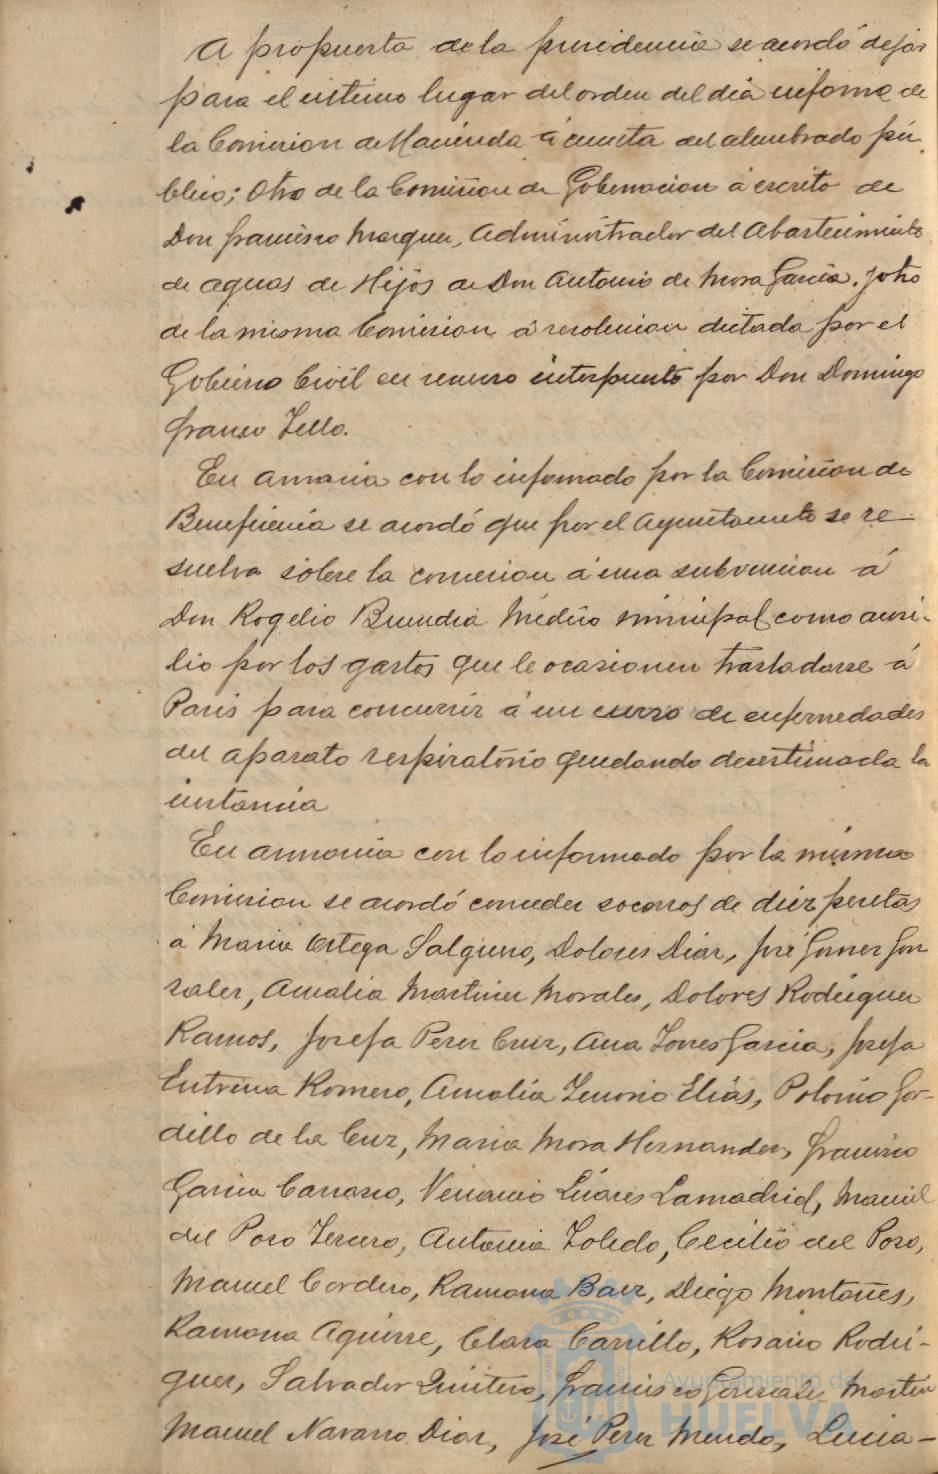 A propuesta de la presidencia se acordó dejar
para el ultimo lugar del orden del dia informe de
la Comision de Hacienda á cuenta del alumbrado pú-
blico; Otro de la Comision de Gobernacion á escrito de
Don Francisco Marquez, Administrador del Abastecimiento
de aguas de Hijos de Don Antonio de Mora Garcia. y otro
de la misma Comision á resolucion dictada por el
Gobierno Civil en recurso interpuesto por Don Domingo
Franco Tello.
En armonia con lo informado por la Comision de
Beneficencia se acordó que por el Ayuntamiento se re-
suelva sobre la concesion á una subvencion á
Don Rogelio Buendia Médico municipal como auxi-
lio por los gastos que le ocasionen trasladarse á
Paris para concurrir á un curso de enfermedades
del aparato respiratorio quedando desestimada la
instancia
En armonia con lo informado por la misma
Comision se acordó conceder socorros de diez pesetas
á Maria Ortega Salguero, Dolores Diaz, José Gomez Gon
zalez, Amalia Martinez Morales, Dolores Rodriguez
Ramos, Josefa Perez Cruz, Ana Torres Garcia, Josefa
Entrena Romero, Amalia Tenorio Elias, Polonio Gor-
dillo de la Cruz, Maria Mora Hernandez, Francisco
Garcia Carrasco, Venancio Linares Lamadrid, Manuel
del Pozo Tercero, Antonia Toledo, Cecilio del Pozo,
Manuel Cordero, Ramona Baez, Diego Montañes,
Ramona Aguirre, Clara Carrillo, Rosario Rodri-
guez, Salvador Quintero, Francisco Gonzalez Martin
Manuel Navarro Diaz, José Perez Mendo, Lucia-
Ayuntamiento de
HUELVA